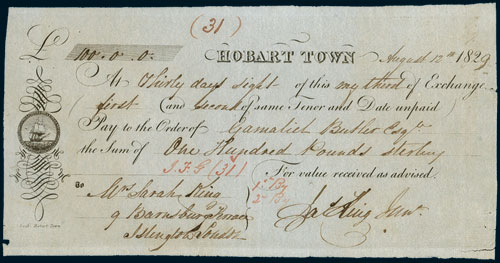 (31)
£ 100.0.0. HOBART TOWN August 12th 1829
At Thirty days sight of this my third of Exchange
first (and Second of same Tenor and Date unpaid
Pay to the Order of Gamaliel Butler Esqre
the Sum of One Hundred Pounds Sterling
(31) For value received as advised.
To Mrs Sarah King
9 Barnsbury Terrace
Islington London
King Junr